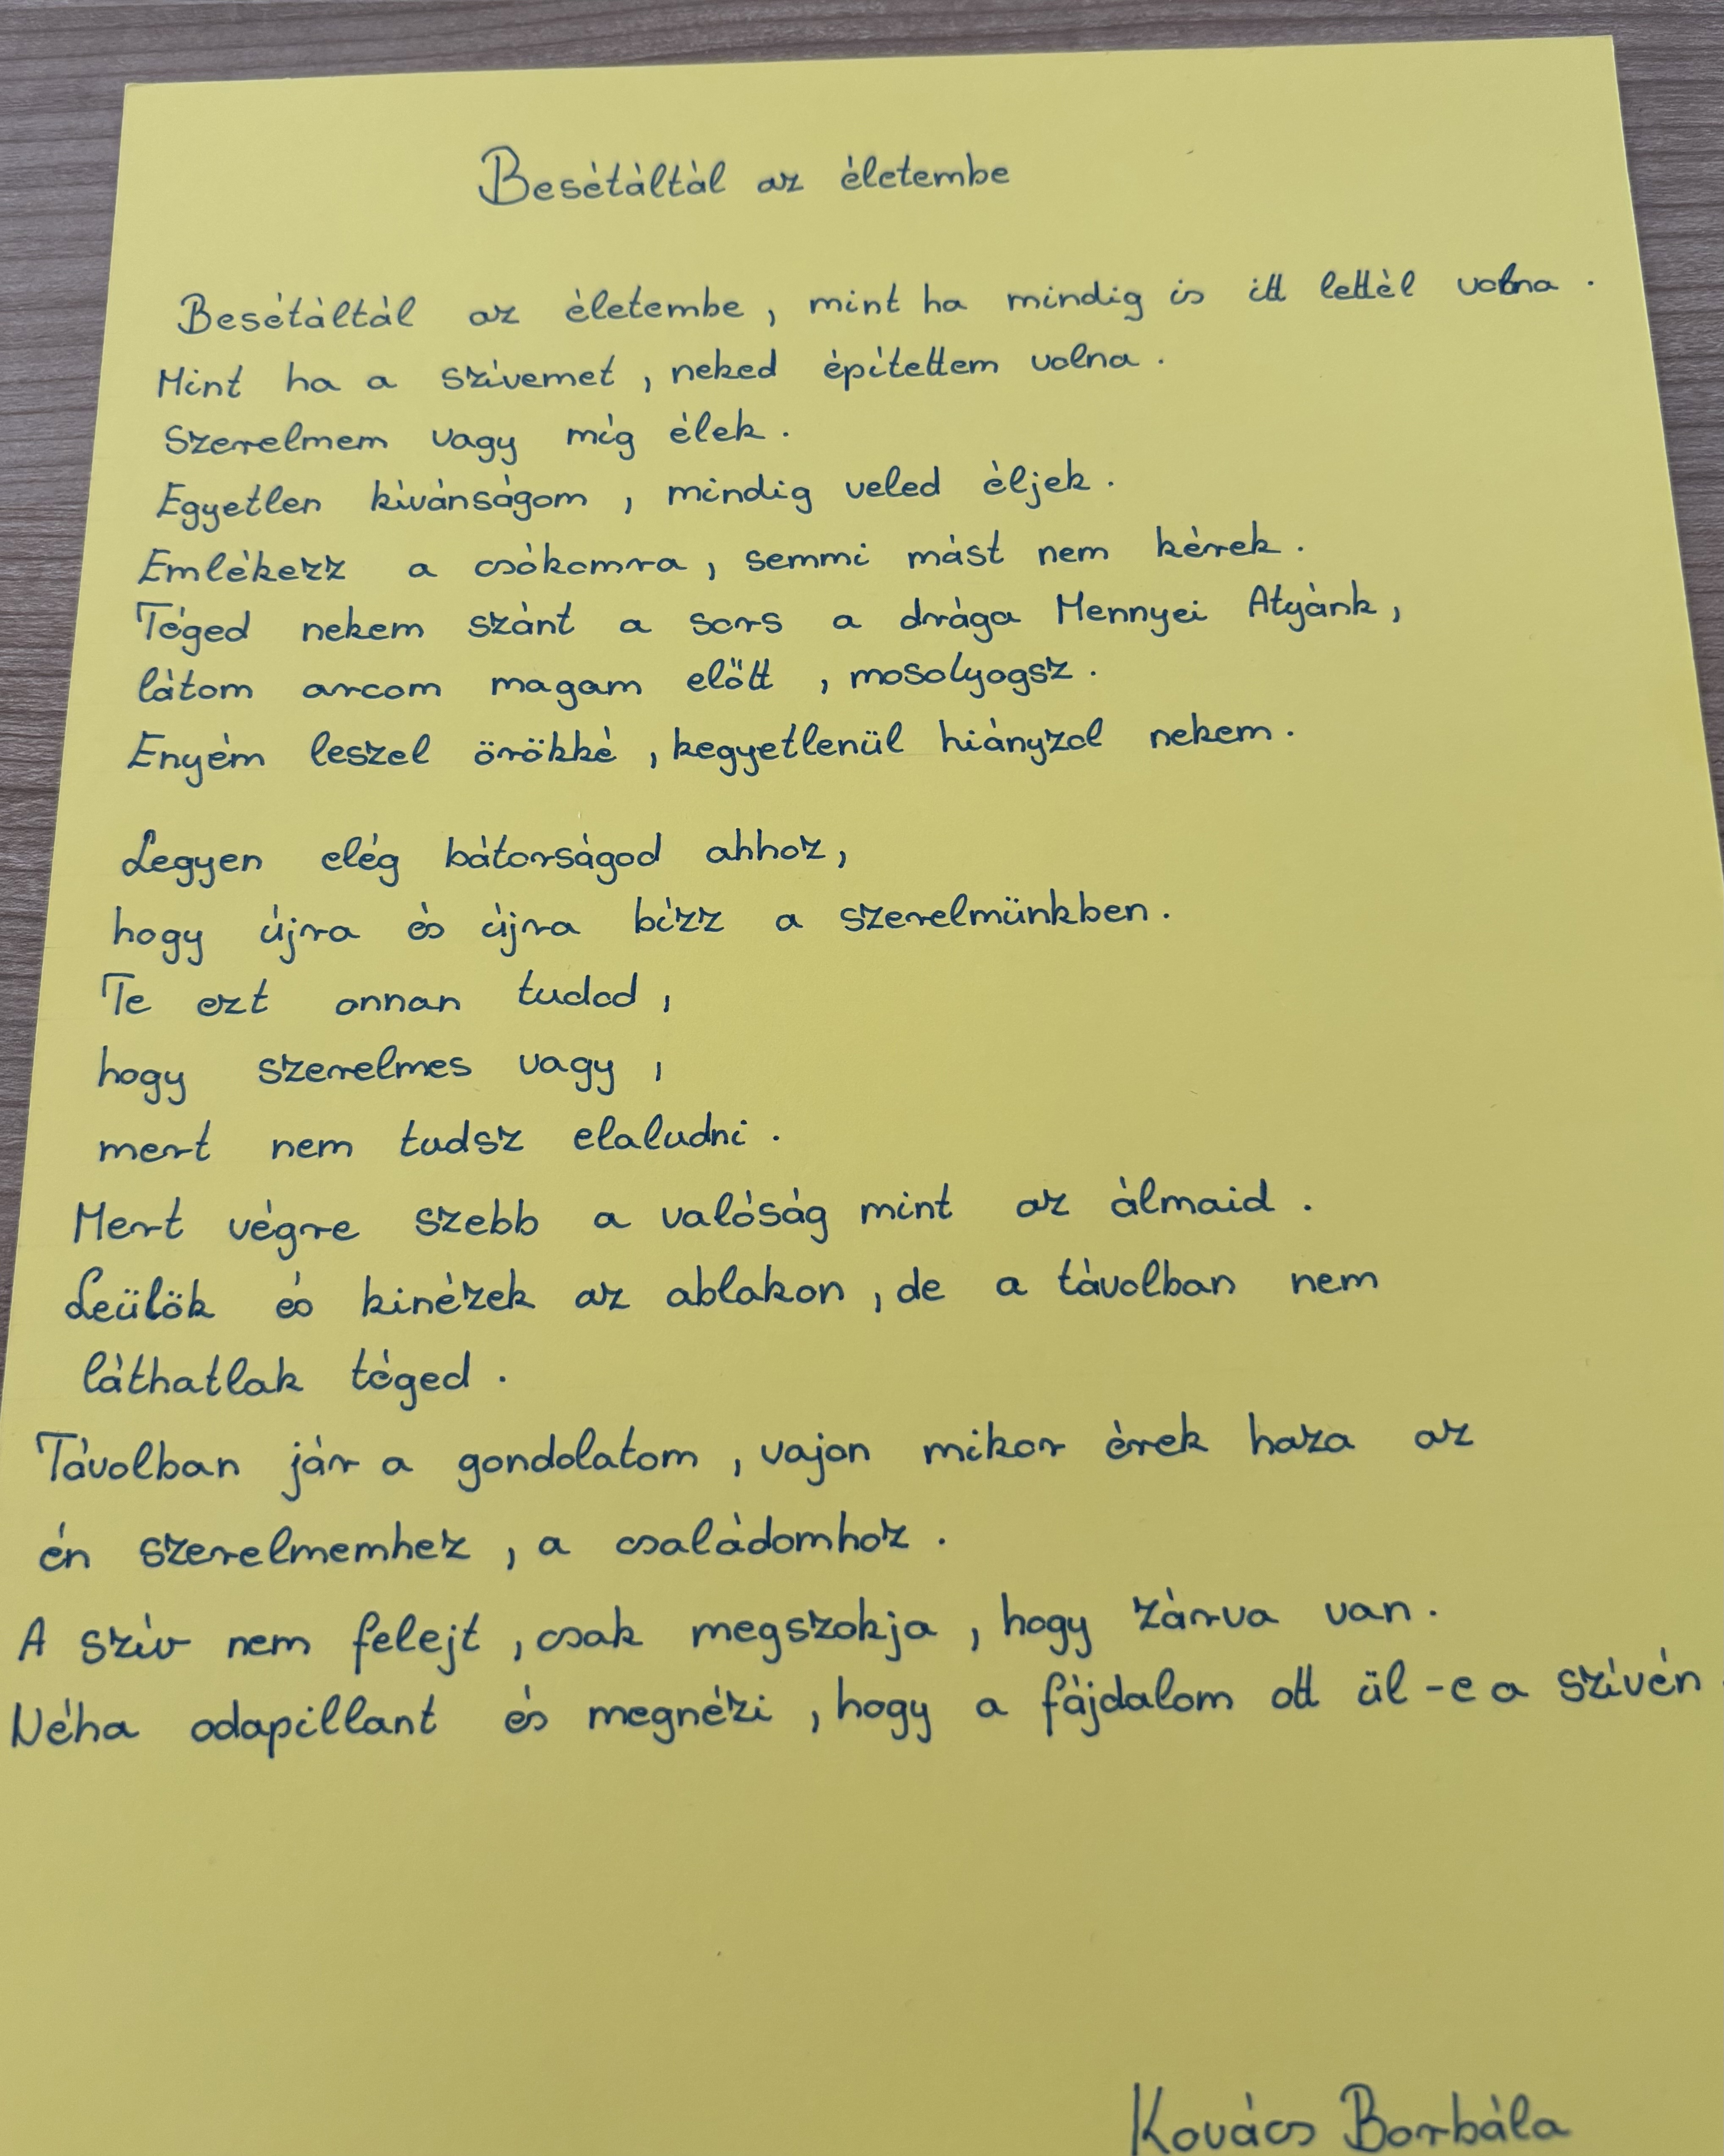 Besétáltál az életembe
Besétáltál az életembe, mint ha mindig is itt lettél volna.
Mint ha a szívemet, neked építettem volna.
Szerelmem vagy míg élek.
Egyetlen kívánságom, mindig veled éljek.
Emlékezz a csókomra, semmi mást nem kérek.
Téged nekem szánt a sors a drága Mennyei Atyánk,
látom arcom magam előtt, mosolyogsz.
Enyém leszel örökké, kegyetlenül hiányzol nekem.
Legyen elég bátorságod ahhoz,
hogy újra és újra bízz a szerelmünkben.
Te ezt onnan tudod,
hogy szerelmes vagy,
mert nem tudsz elaludni.
Mert végre szebb a valóság mint az álmaid.
Leülök és kinézek az ablakon, de a távolban nem
láthatlak téged.
Távolban jár a gondolatom, vajon mikor érek haza az
én szerelmemhez, a családomhoz.
A szív nem felejt, csak megszokja, hogy zárva van.
Néha odapillant és megnézi, hogy a fájdalom ott ül-e a szívén.
Kovács Borbála